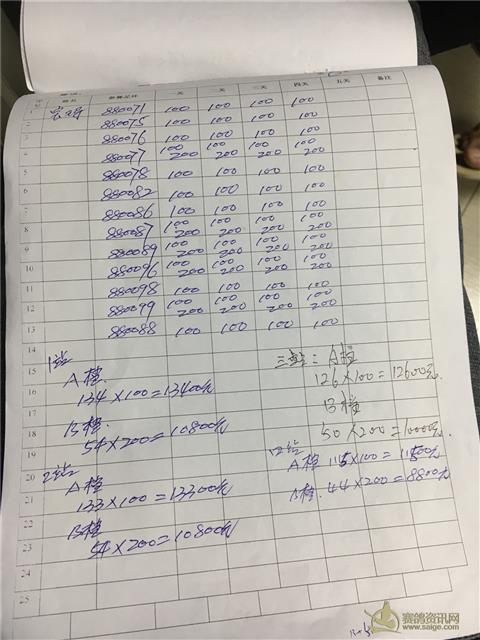 序号 姓名 参赛足环 一天 二天 三天 四天 五天 备注
1 880071 100 100 100 100
2 880075 100 100 100 100
3 880076 100 100 100 100
4 880077 100 200 100 200 100 200 100 200
5 880078 100 100 100 100
6 880082 100 100 100 100
7 880086 100 100 100 100
8 880087 100 200 100 200 100 200 100 200
9 880089 100 200 100 200 100 200 100 200
10 880096 100 200 100 200 100 200 100 200
11 880098 100 100 100 100
12 880099 100 200 100 200 100 200 100 200
13 880088 100 100 100 100
14
15
16
17
18
19
20
21
22
23
24
25
1站
A档
134×100=13400元
B档
54×200=10800元
2站
A档
133×100=13300元
B档
54×200=10800元
三站: A档
126×100=12600元
B档
50×200=10000元
四站
A档 115×100=11500元
B档 44×200=8800元
赛鸽资讯网
www.saige.com